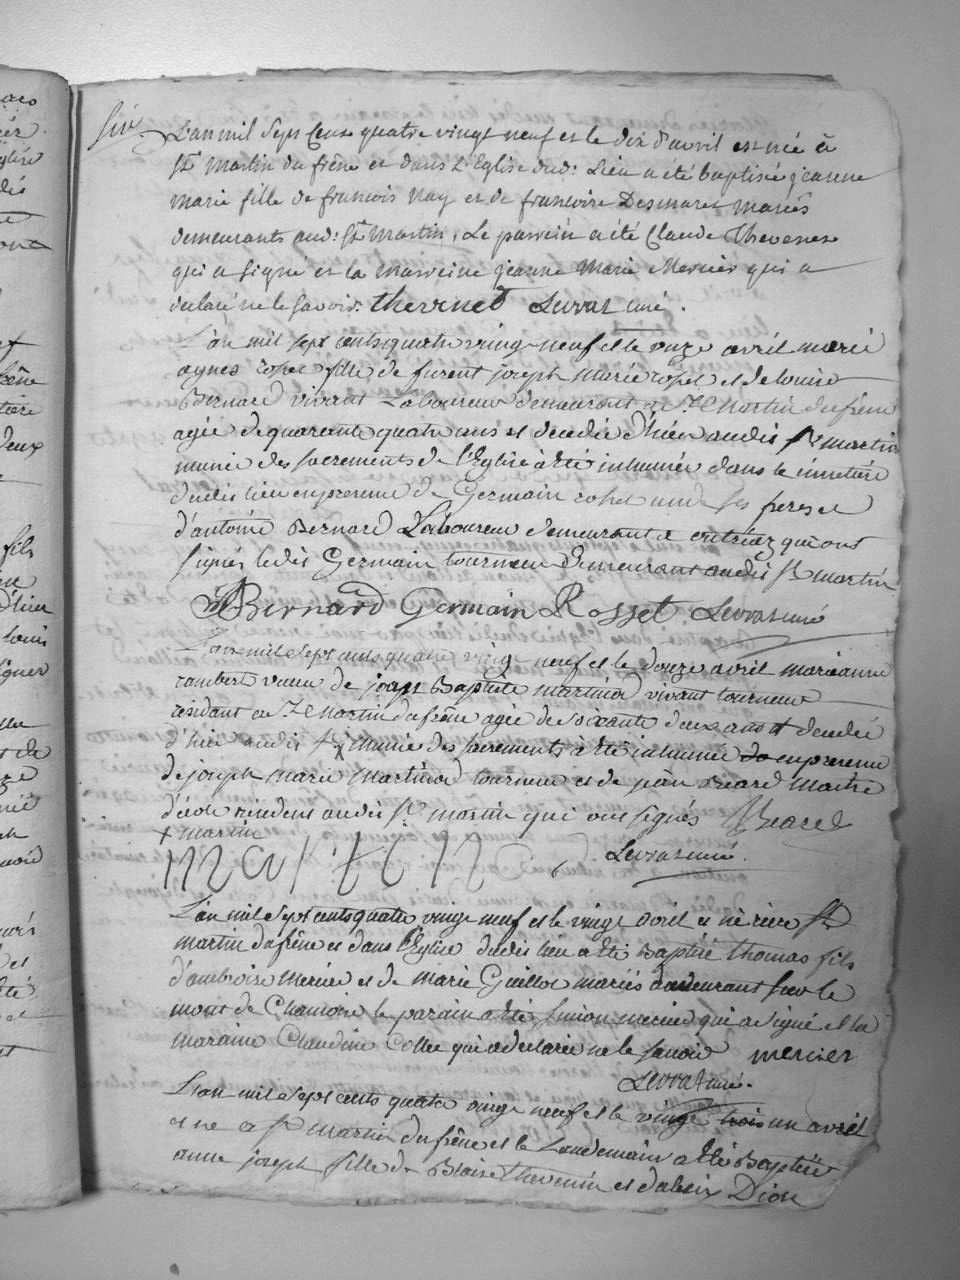 Six
L'an mil Sept Cens quatre vingt neuf et le dix d'avril est née à
St Martin du frêne et dans L'Eglise dud: Lieu a été baptisée jeanne
marie fille de francois Nay et de francoise Desmaret mariés
demeurants aud: St Martin, Le parrein a été Claude Thevenet
qui a signé et la Marreine jeanne Marie Mercier qui a
declaré ne le savoir. thevenet Levrat curé.
L'an mil sept cents quatre vingt neuf et le onze avril marie
agnes rosset fille de furent joseph Marie rosset et de louise
Bernard vivant Laboureur demeurant à St Martin du frêne
agée de quarente quatre ans et decedée d'hier audit St martin
munie des sacrements de l'Eglise à été inhumée dans le cimetière
dudit lieu en presence de Germain rosset un de ses freres et
d'antoine Bernard Laboureur demeurant a qui ont
signés ledit Germain tourneur demeurant audit St martin
Bernard Germain Rosset. Levrat curé
L'an mil Sept cents quatre vingt neuf et le douze avril marianne
rambert veuve de jean Baptiste martinod vivant tourneur
résidant à St Martin du frêne agée de soixante deux ans et decedée
d'hier audit St Munie des sacrements à été inhumée en presence
de joseph marie Martinod tourneur et de jean Beard Maitre
d'école résidens audit St martin qui ont signés Beard
+ martin
Levrat curé.
L'an mil Sept cents quatre vingt neuf et le vingt avril è né rière St
martin du frêne et dans l'Eglise dudit lieu a été Baptisé thomas fils
d'ambroise Mercier et de marie Guillot mariés demeurant sur le
mont de Chamoise le parain a été simon mercier qui a signé et la
maraine Claudine Collet qui a declarée ne le savoir mercier
Levrat curé.
L'an mil Sept cents quatre vingt neuf et le vingt trois un avril
et ne a St martin du frêne et le Landemain a été Baptisée
anne joseph fille de Blaise thevenin et d'alix Dion